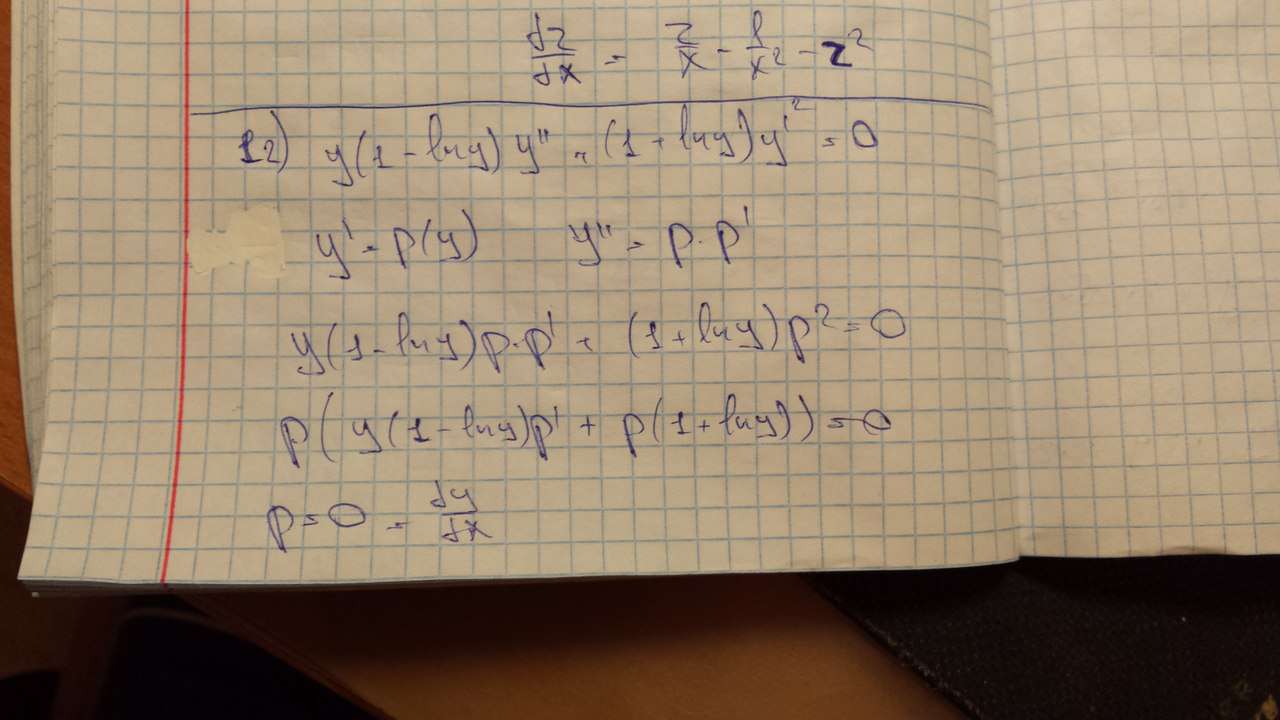 dz/dx = z/x - 1/x² - z²
12) y(1 - ln y) y'' + (1 + ln y) y'² = 0
y' = p(y) y'' = p · p'
y(1 - ln y) p · p' + (1 + ln y) p² = 0
p( y(1 - ln y) p' + p(1 + ln y)) = 0
p = 0 = dy/dx